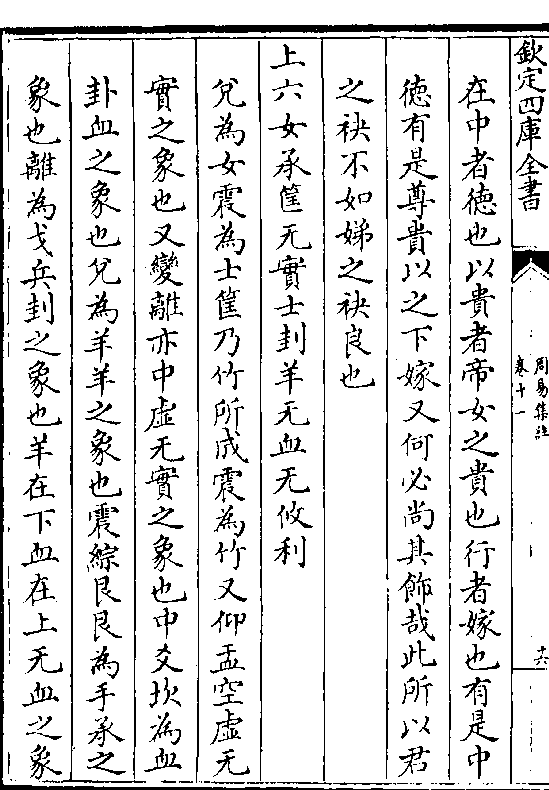 欽定四庫全書
周易集註
卷十一
十六
在中者德也以貴者帝女之貴也行者嫁也有是中
德有是尊貴以之下嫁又何必尚其飾哉此所以君
之袂不如娣之袂良也
上六女承筐无實士刲羊无血无攸利
兌為女震為士筐乃竹所成震為竹又仰盂空虛无
實之象也又變離亦中虛无實之象也中爻坎為血
卦血之象也兌為羊羊之象也震綜艮艮為手承之
象也離為戈兵刲之象也羊在下血在上无血之象